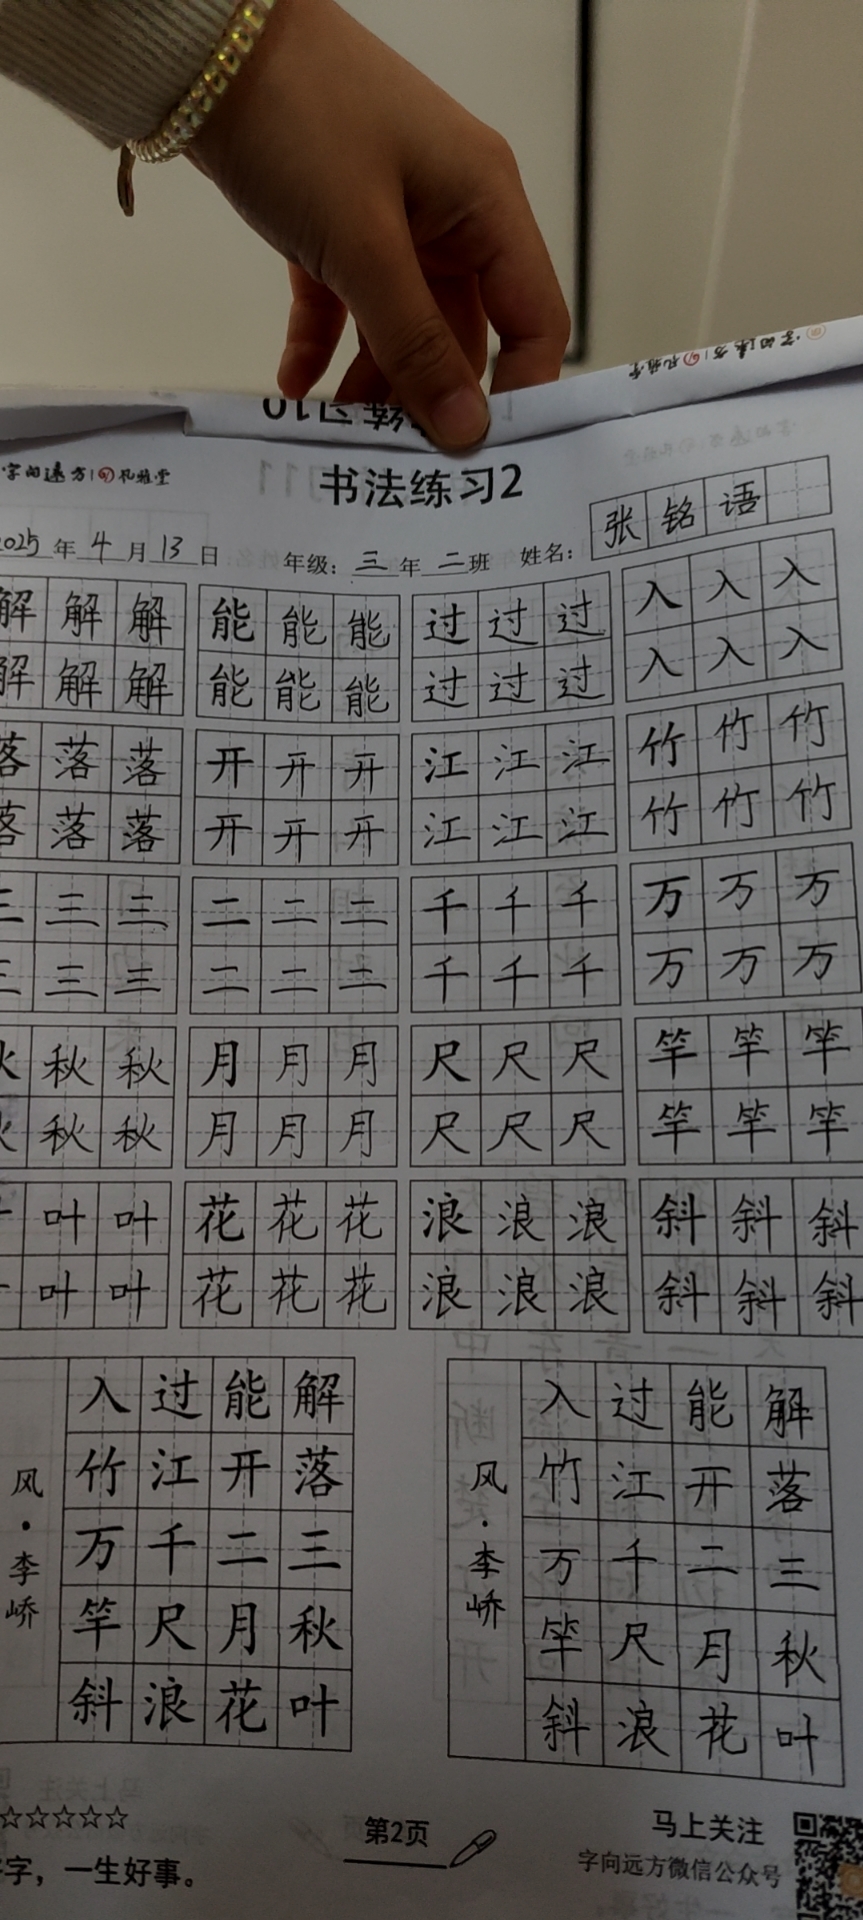 字向远方 | 孔雅堂
书法练习2
2025年4月13日 年级：三年二班 姓名：张铭语
解解解 能能能 过过过 入入入
解解解 能能能 过过过 入入入
落落落 开开开 江江江 竹竹竹
落落落 开开开 江江江 竹竹竹
三三三 二二二 千千千 万万万
三三三 二二二 千千千 万万万
秋秋秋 月月月 尺尺尺 竿竿竿
秋秋秋 月月月 尺尺尺 竿竿竿
叶叶 花花花 浪浪浪 斜斜斜
叶叶 花花花 浪浪浪 斜斜斜
解落三秋叶
能开二月花
过江千尺浪
入竹万竿斜
风·李峤
解落三秋叶
能开二月花
过江千尺浪
入竹万竿斜
风·李峤
☆☆☆☆☆
字，一生好事。
第2页
马上关注
字向远方微信公众号